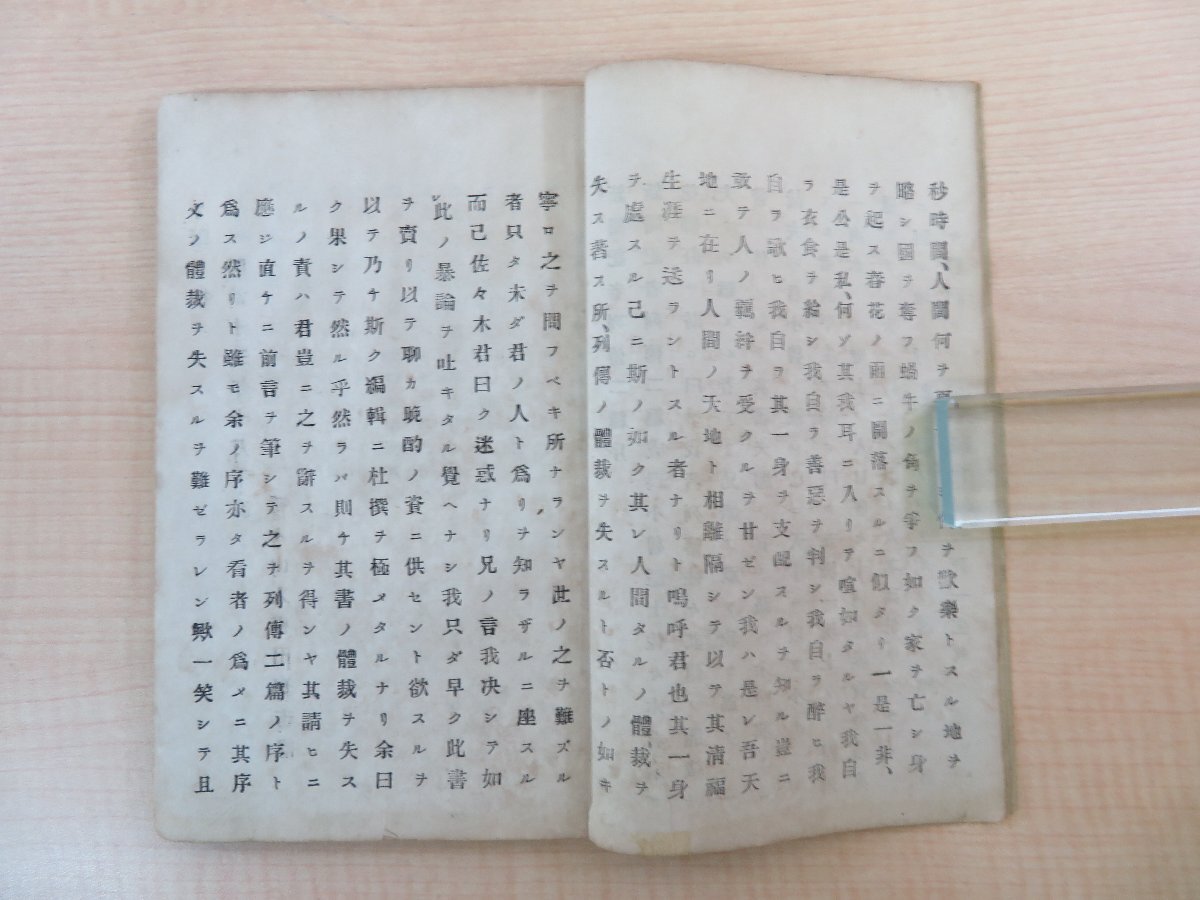 秒時間、人間何ヲ ヲ歡樂トスル地ヲ
略シ國ヲ奪フ蝸牛ノ角ヲ爭フ如ク家ヲ亡シ身
ヲ起ス春花ノ雨ニ開落スルニ似タリ一是一非、
是公是私、何ゾ其我耳ニ入リテ喧如タルヤ我自
ラ衣食ヲ給シ我自ラ善惡ヲ判シ我自ラ醉ヒ我
自ラ詠ヒ我自ラ其一身ヲ支配スルヲ知ル豈ニ
敢テ人ノ羈絆ヲ受クルヲ甘ゼン我ハ是レ吾天
地ニ在リ人間ノ天地ト相離隔シテ以テ其清福
生涯ヲ送ラントスル者ナリト嗚呼君也其一身
ヲ處スル己ニ斯ノ如ク其レ人間タルノ體裁ヲ
失ス著ス所、列傳ノ體裁ヲ失スルト否トノ如キ
寧ロ之ヲ問フベキ所ナランヤ世ノ之ヲ難ズル
者只タ未ダ君ノ人ト爲リヲ知ラザルニ座スル
而已佐々木君曰ク迷惑ナリ兄ノ言我決シテ如
此ノ暴論ヲ吐キタル覺ヘナシ我只ダ早ク此書
ヲ賣リ以テ聊カ晩酌ノ資ニ供セント欲スルヲ
以テ乃チ斯ク編輯ニ杜撰ヲ極メタルナリ余曰
ク果シテ然ル乎然ラバ則チ其書ノ體裁ヲ失ス
ルノ責ハ君豈ニ之ヲ辭スルヲ得ンヤ其請ヒニ
應ジ直チニ前言ヲ筆シテ之ヲ列傳二篇ノ序ト
爲ス然リト雖モ余ノ序亦タ看者ノ爲メニ其序
文ノ體裁ヲ失スルヲ難ゼラレン歟一笑シテ且